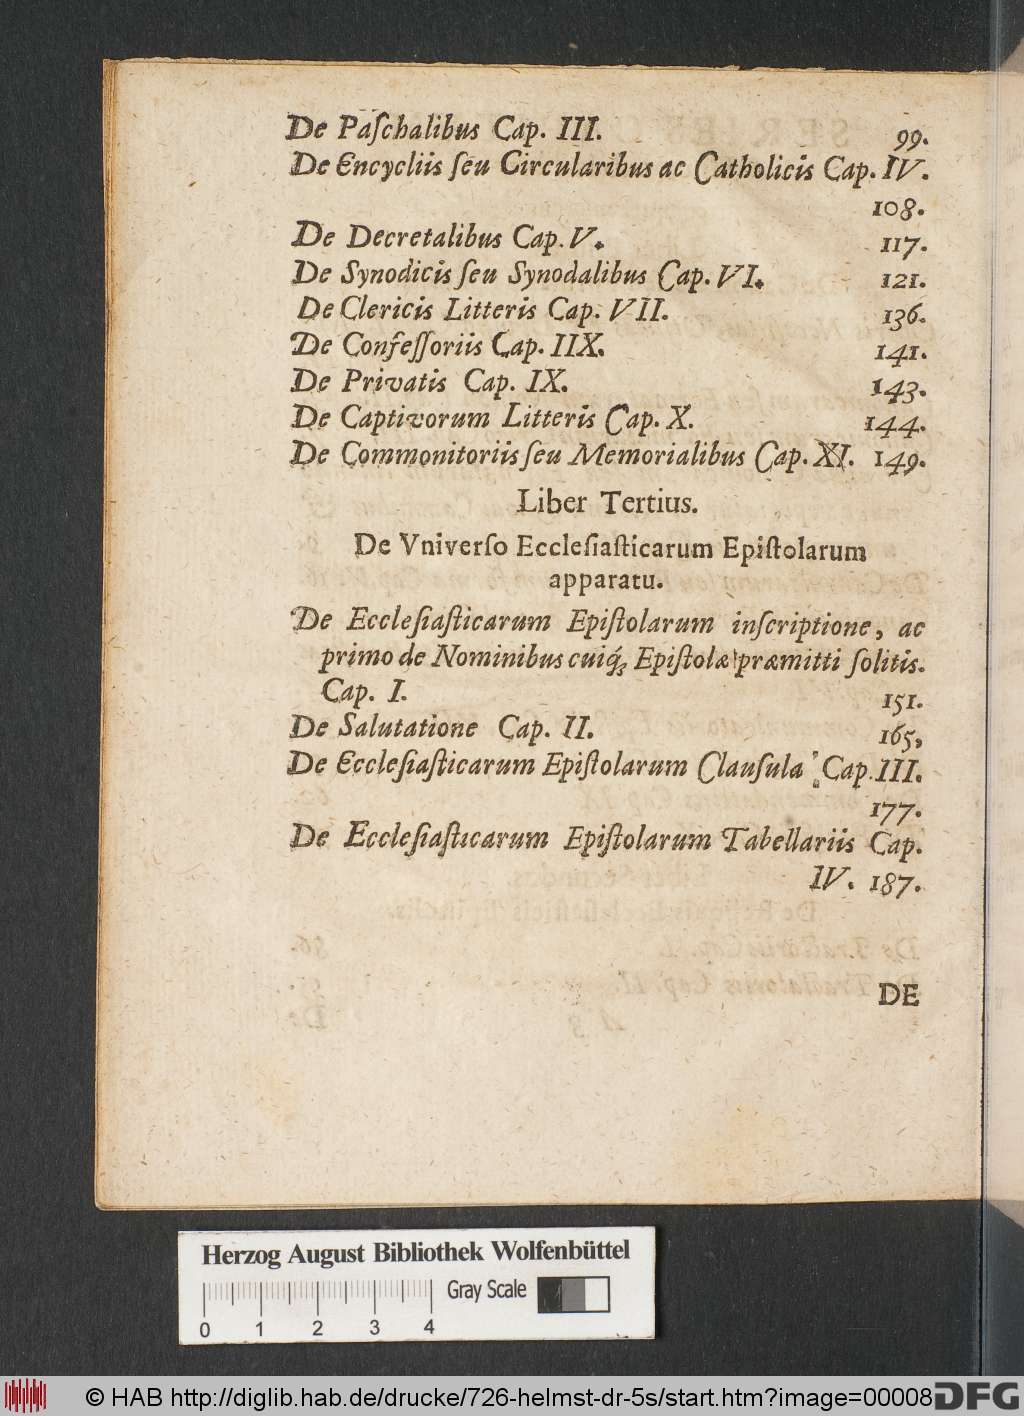 De Paſchalibus Cap. III. 99.
De Encycliis ſeu Circularibus ac Catholicis Cap. IV.
108.
De Decretalibus Cap. V. 117.
De Synodicis ſeu Synodalibus Cap. VI. 121.
De Clericis Litteris Cap. VII. 136.
De Confeſſoriis Cap. IIX. 141.
De Privatis Cap. IX. 143.
De Captivorum Litteris Cap. X. 144.
De Commonitoriis ſeu Memorialibus Cap. XI. 149.
Liber Tertius.
De Vniverſo Eccleſiaſticarum Epiſtolarum
apparatu.
De Eccleſiaſticarum Epiſtolarum inſcriptione, ac
primo de Nominibus cuiq́; Epiſtolæ præmitti ſolitis.
Cap. I. 151.
De Salutatione Cap. II. 165,
De Eccleſiaſticarum Epiſtolarum Clauſula Cap. III.
177.
De Eccleſiaſticarum Epiſtolarum Tabellariis Cap.
IV. 187.
DE
Herzog August Bibliothek Wolfenbüttel
Gray Scale
0 1 2 3 4
© HAB http://diglib.hab.de/drucke/726-helmst-dr-5s/start.htm?image=00008
DFG